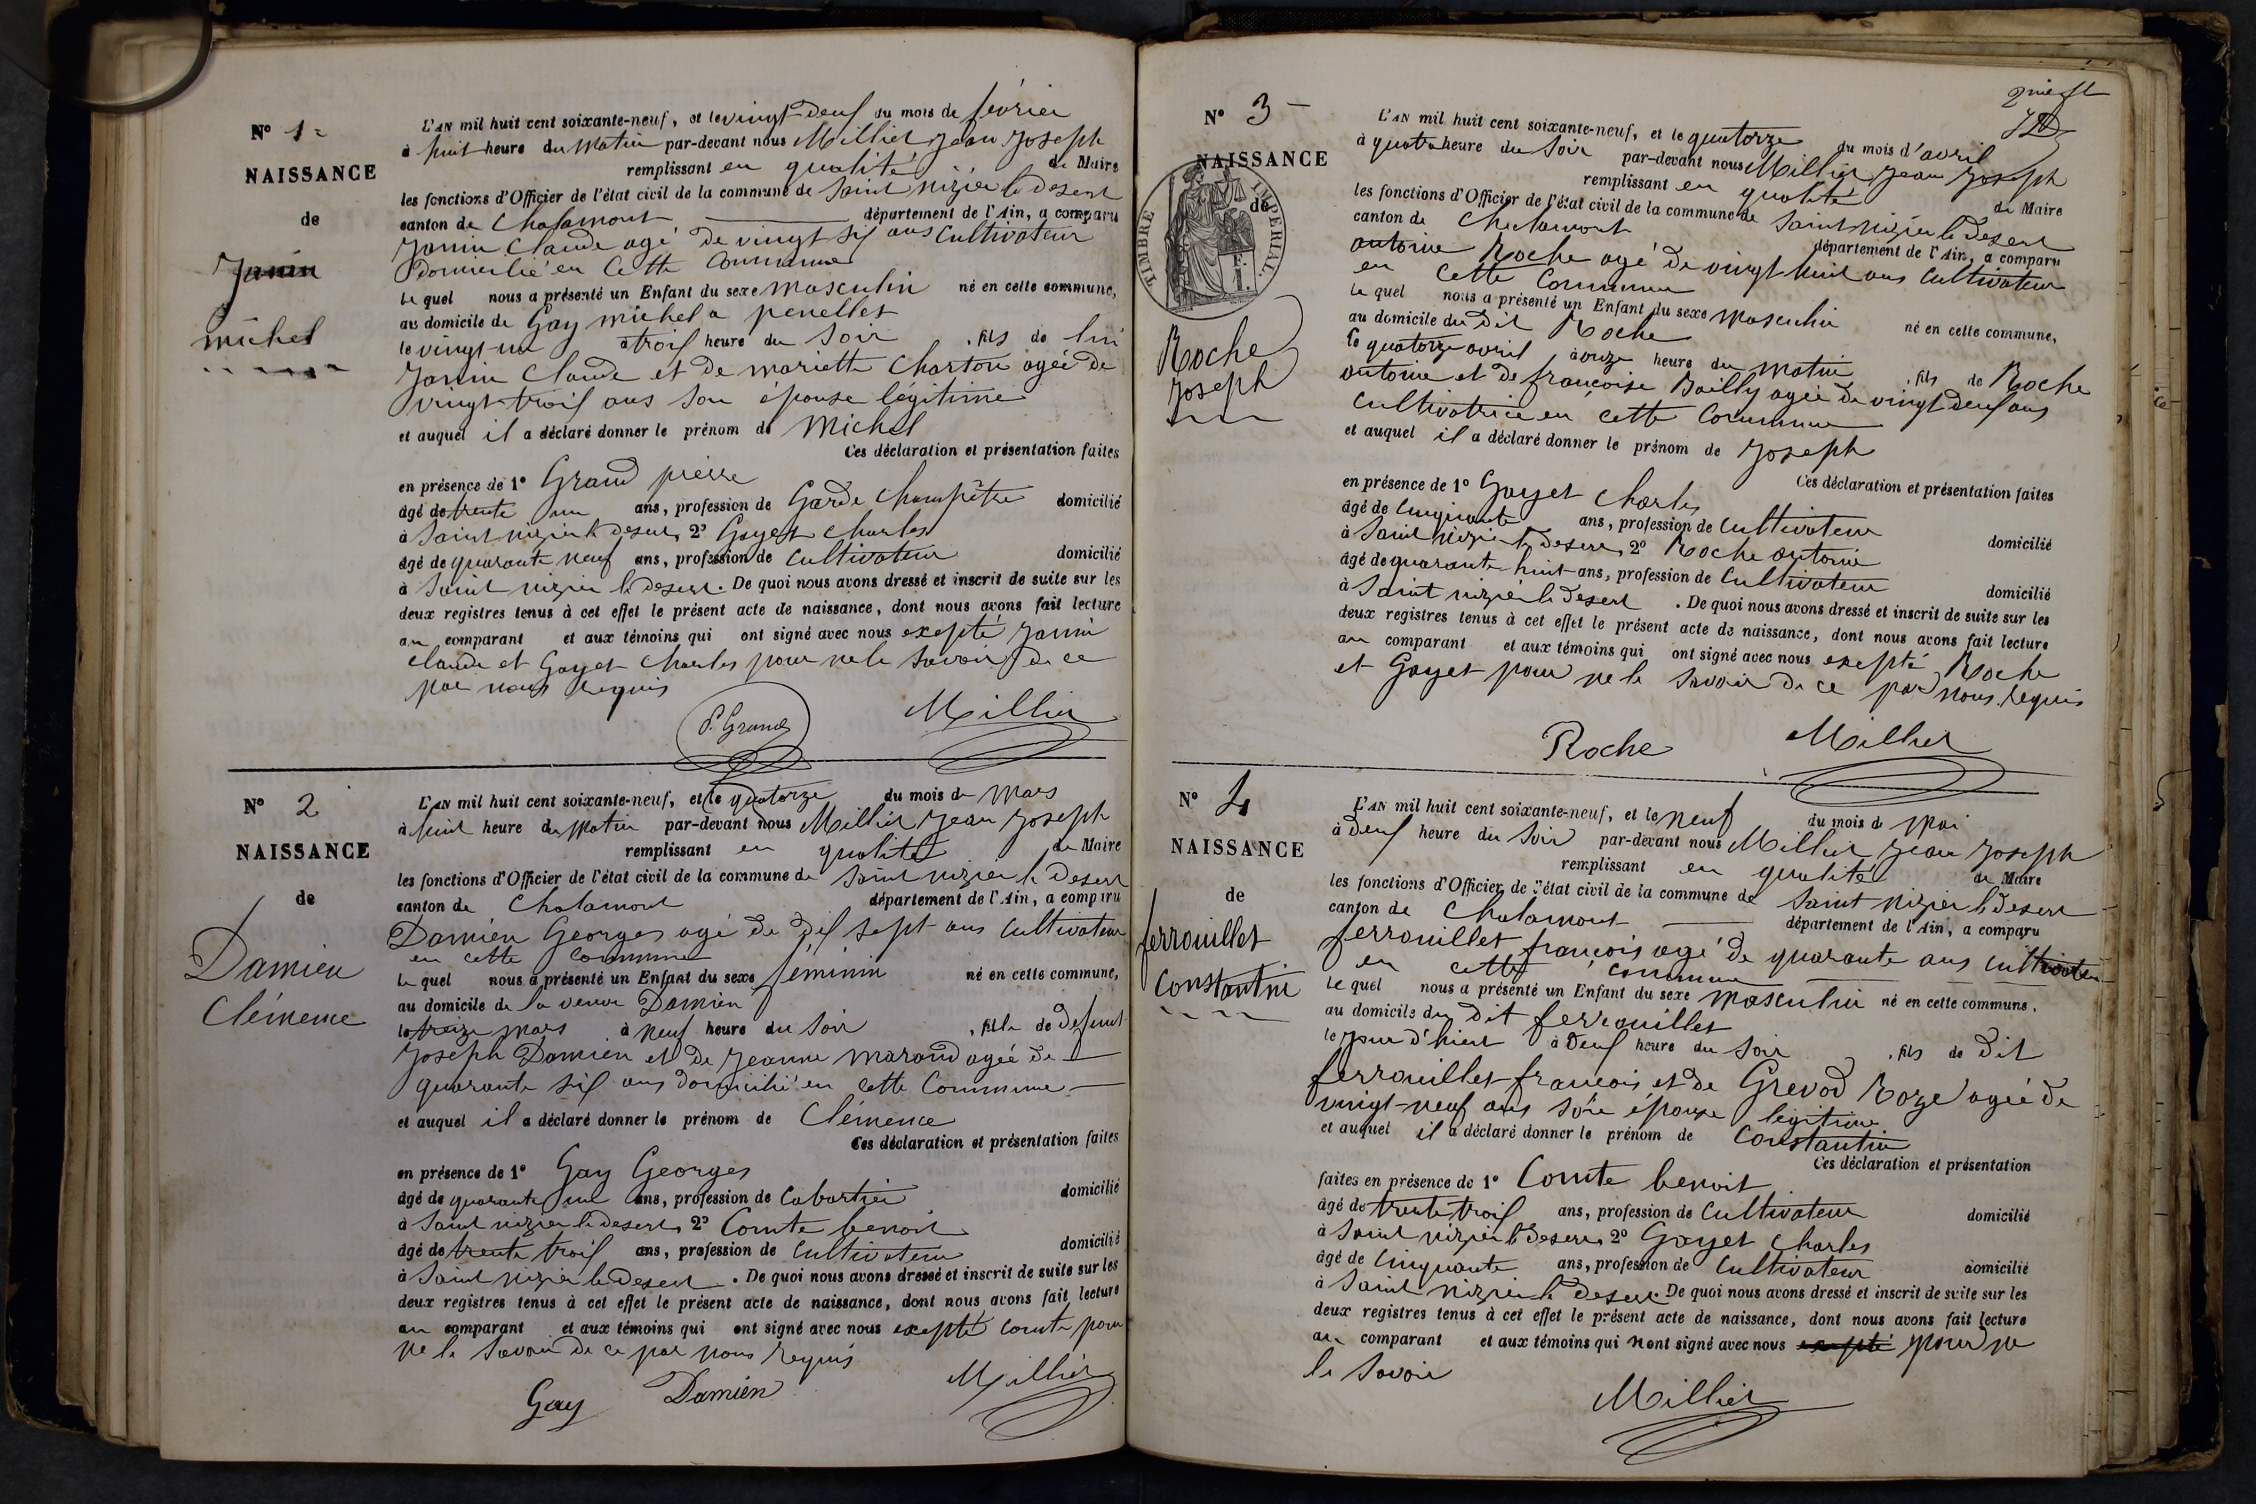 N° 1
NAISSANCE
de
Janin
michel
L'AN mil huit cent soixante-neuf, et le vingt-deux du mois de février
à huit heure du matin par-devant nous Millier Jean Joseph
remplissant en qualité de Maire
les fonctions d'Officier de l'état civil de la commune de Saint nizier le desert
canton de Chalamont département de l'Ain, a comparu
Janin Claude agé de vingt six ans Cultivateur
domicilié en Cette Commune
le quel nous a présenté un Enfant du sexe masculin né en cette commune,
au domicile de Gay michel a penellet
le vingt-un à trois heure du Soir , fils de lui
Janin Claude et de mariette Charton agée de
vingt-trois ans Son épouse légitime
et auquel il a déclaré donner le prénom de Michel
Ces déclaration et présentation faites
en présence de 1° Grand pierre
âgé de trente un ans, profession de Garde Champêtre domicilié
à Saint nizier le desert, 2° Gayet Charles
âgé de quarante neuf ans, profession de Cultivateur domicilié
à Saint nizier le desert. De quoi nous avons dressé et inscrit de suite sur les
deux registres tenus à cet effet le présent acte de naissance, dont nous avons fait lecture
au comparant et aux témoins qui ont signé avec nous excepté Janin
claude et Gayet Charles pour ne le Savoir de ce
par nous requis
P. Grand Millier
N° 2
NAISSANCE
de
Damien
Clémence
L'AN mil huit cent soixante-neuf, et le quatorze du mois de mars
à huit heure du matin par-devant nous Millier Jean Joseph
remplissant en qualité de Maire
les fonctions d'Officier de l'état civil de la commune de Saint nizier le Desert
canton de Chalamont département de l'Ain, a comparu
Damien Georges agé de dix sept ans Cultivateur
en cette Commune
le quel nous a présenté un Enfant du sexe féminin né en cette commune,
au domicile de la veuve Damien
le treize mars à neuf heure du Soir , fille de defunt
Joseph Damien et de Jeanne marand agée de
quarante six ans domicilié en cette Commune
et auquel il a déclaré donner le prénom de Clémence
Ces déclaration et présentation faites
en présence de 1° Gay Georges
âgé de quarante un ans, profession de Cabartier domicilié
à Saint nizier le desert, 2° Comte benoit
âgé de trente trois ans, profession de Cultivateur domicilié
à Saint nizier le desert. De quoi nous avons dressé et inscrit de suite sur les
deux registres tenus à cet effet le présent acte de naissance, dont nous avons fait lecture
au comparant et aux témoins qui ont signé avec nous excepté Comte pour
ne le Savoir de ce par nous requis
Gay Damien Millier
N° 3
NAISSANCE
de
TIMBRE IMPERIAL
Roche
Joseph
L'AN mil huit cent soixante-neuf, et le quatorze du mois d'avril
à quatre heure du Soir par-devant nous Millier Jean Joseph
remplissant en qualité de Maire
les fonctions d'Officier de l'état civil de la commune de Saint nizier le Desert
canton de Chalamont département de l'Ain, a comparu
antoine Roche agé de vingt huit ans Cultivateur
en Cette Commune
le quel nous a présenté un Enfant du sexe masculin né en cette commune,
au domicile du dit Roche
le quatorze avril à onze heure du matin , fils de Roche
antoine et de françoise Bailly agée de vingt deux ans
Cultivatrice en cette Commune
et auquel il a déclaré donner le prénom de Joseph
Ces déclaration et présentation faites
en présence de 1° Gayet Charles
âgé de Cinquante ans, profession de Cultivateur domicilié
à Saint nizier le desert, 2° Roche antoine
âgé de quarante huit ans, profession de Cultivateur domicilié
à Saint nizier le desert. De quoi nous avons dressé et inscrit de suite sur les
deux registres tenus à cet effet le présent acte de naissance, dont nous avons fait lecture
au comparant et aux témoins qui ont signé avec nous excepté Roche
et Gayet pour ne le Savoir de ce par nous requis
Roche Millier
N° 4
NAISSANCE
de
ferrouillet
Constantin
L'AN mil huit cent soixante-neuf, et le neuf du mois de Mai
à deux heure du Soir par-devant nous Millier Jean Joseph
remplissant en qualité de Maire
les fonctions d'Officier de l'état civil de la commune de Saint nizier le desert
canton de Chalamont département de l'Ain, a comparu
ferrouillet françois agé de quarante ans cultivateur
en cette commune
le quel nous a présenté un Enfant du sexe masculin né en cette commune.
au domicile du dit ferrouillet
le jour d'hier à deux heure du Soir , fils de dit
ferrouillet françois et de Grevod Roze agée de
vingt-neuf ans Son épouse légitime
et auquel il a déclaré donner le prénom de Constantin
Ces déclaration et présentation
faites en présence de 1° Comte benoit
âgé de trente trois ans, profession de Cultivateur domicilié
à Saint nizier le desert, 2° Gayet Charles
âgé de Cinquante ans, profession de Cultivateur domicilié
à Saint nizier le desert. De quoi nous avons dressé et inscrit de suite sur les
deux registres tenus à cet effet le présent acte de naissance, dont nous avons fait lecture
au comparant et aux témoins qui nont signé avec nous excepté pour ne
le Savoir
Millier